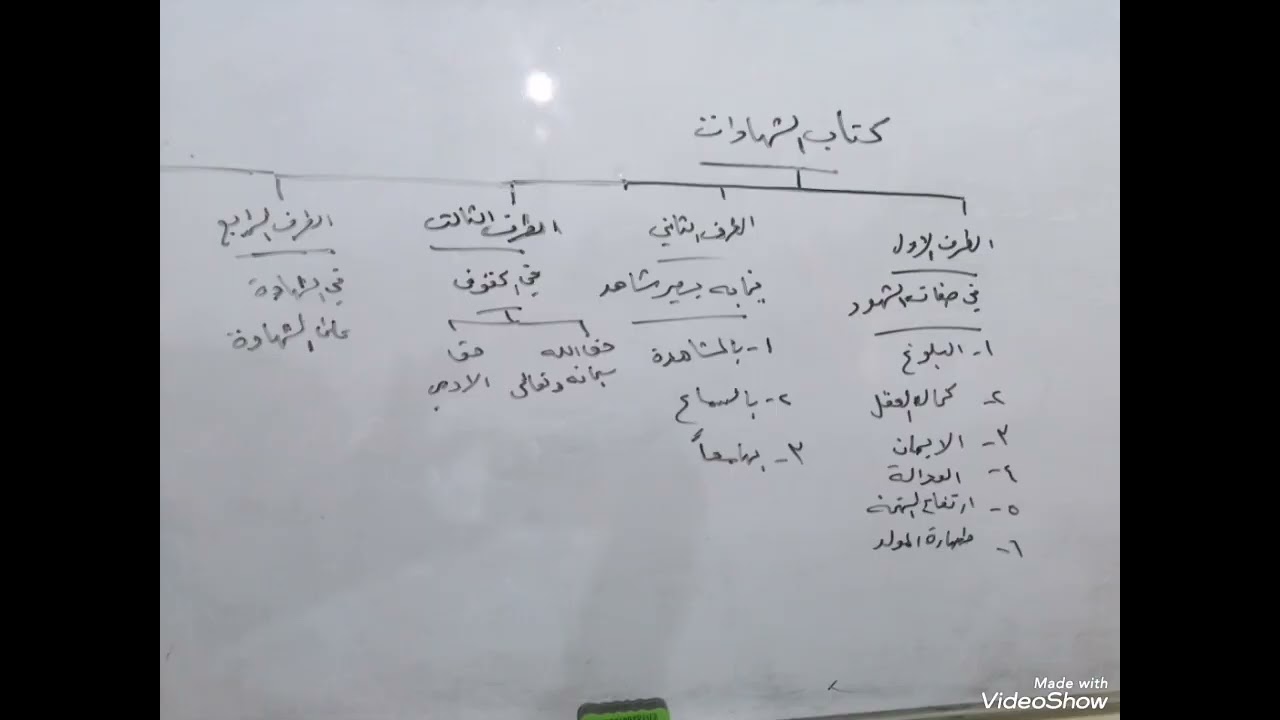 كتاب الشهادات
الطرف الاول
في صفات الشهود
١- البلوغ
٢- كمال العقل
٣- الايمان
٤- العدالة
٥- ارتفاع التهمة
٦- طهارة المولد
الطرف الثاني
فيما به يصير شاهد
١- بالمشاهدة
٢- بالسماع
٣- بهما معاً
الطرف الثالث
في الحقوق
حق الله
سبحانه وتعالى
حق
الادمي
الطرف الرابع
في الشهادة
على الشهادة
Made with
VideoShow